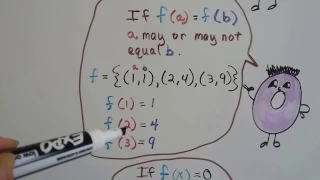 If f(a)=f(b)
a may or may not
equal b.
a b
f = {(1,1), (2,4), (3,9)}
f(1) = 1
f(2) = 4
f(3) = 9
EXPO
If f(x)=0